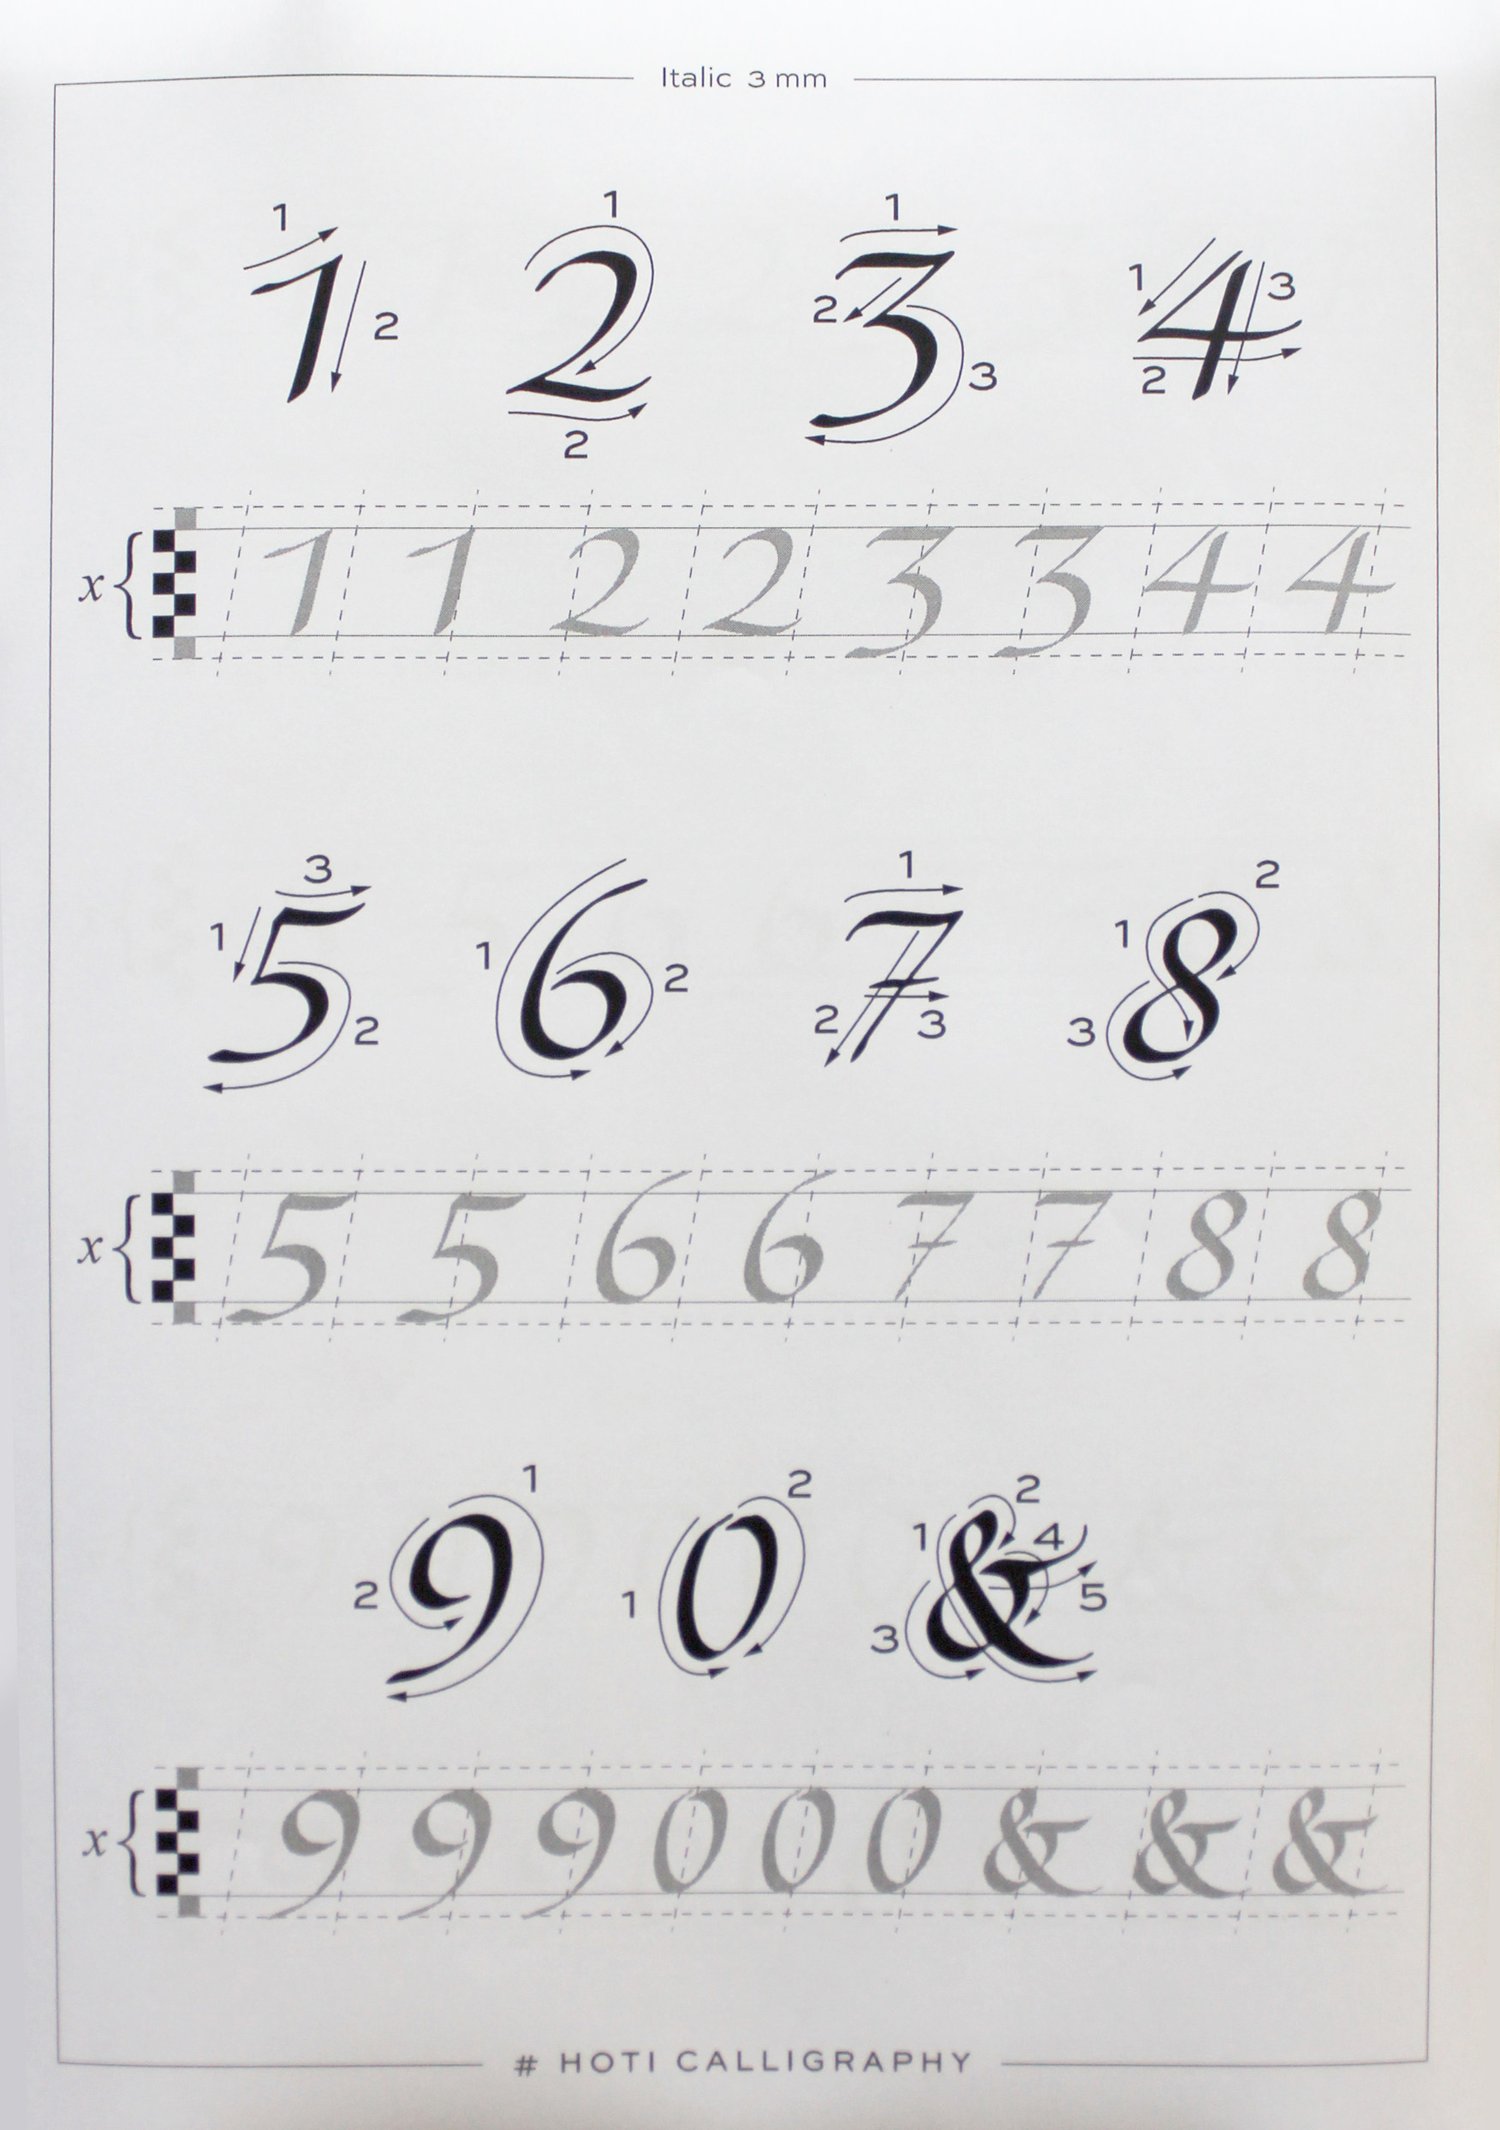 Italic 3 mm
1 1 1
1 2 3 4
2 2 1 3
2 3 2
2
x { 1 1 2 2 3 3 4 4
3 1 2
5 6 7 8
1 1 2 1
2 2 3 3
x { 5 5 6 6 7 7 8 8
1 2 2
9 0 & 1 4
2 1 3 5
x { 9 9 9 0 0 0 & & &
# HOTI CALLIGRAPHY